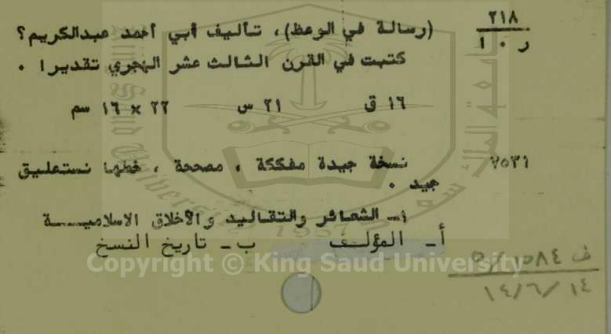 ٢١٨
ر ٠ أ
(رسالة في الوعظ)، تأليف أبي أحمد عبدالكريم؟
كتبت في القرن الثالث عشر الهجري تقديرا ٠
١٦ ق ٢١ س ٢٢ × ١٦ سم
نسخة جيدة مفككة ، مصححة ، خطها نستعليق
جيد ٠
١ـ الشعائر والتقاليد والأخلاق الاسلاميـــة
أ ـ المؤلف ب ـ تاريخ النسخ
Copyright © King Saud University
١٤/٦/١٤